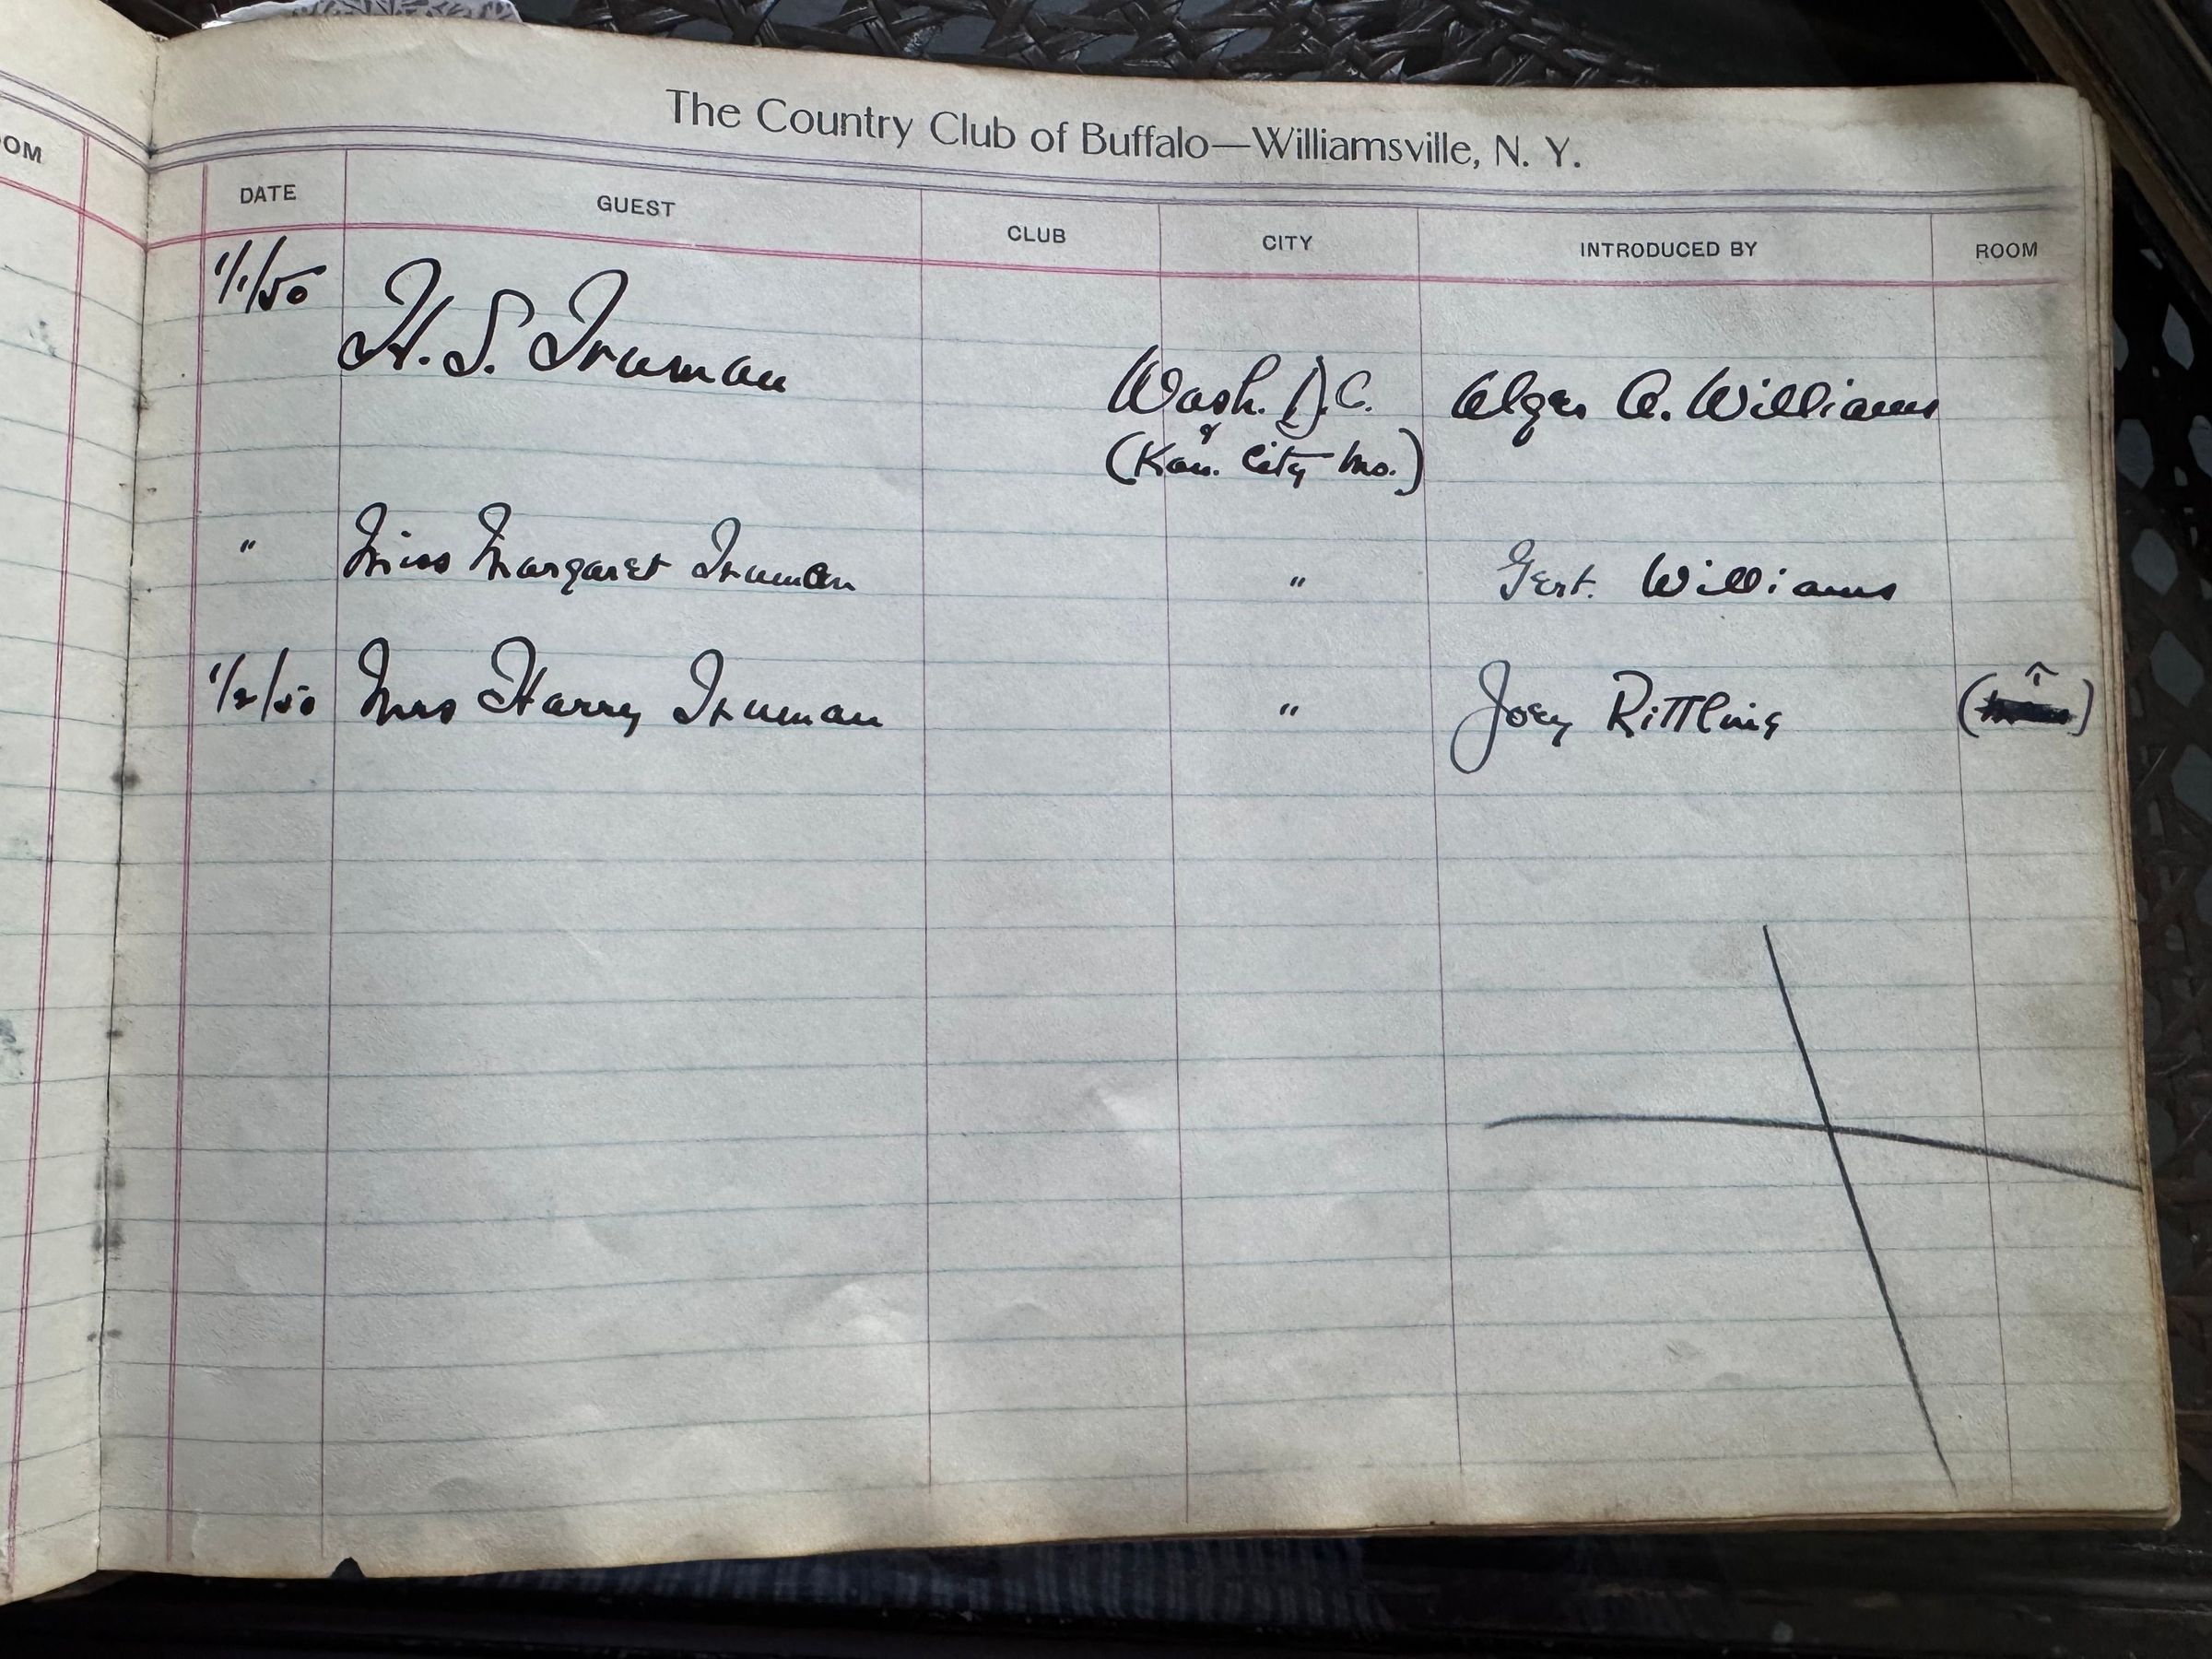 The Country Club of Buffalo—Williamsville, N. Y.
OOM
DATE GUEST CLUB CITY INTRODUCED BY ROOM
1/1/50 H. S. Truman Wash. D.C. Alger A. Williams
&
(Kan. City Mo.)
" Miss Margaret Truman " Gert. Williams
1/2/50 Mrs Harry Truman " Joey Rittling